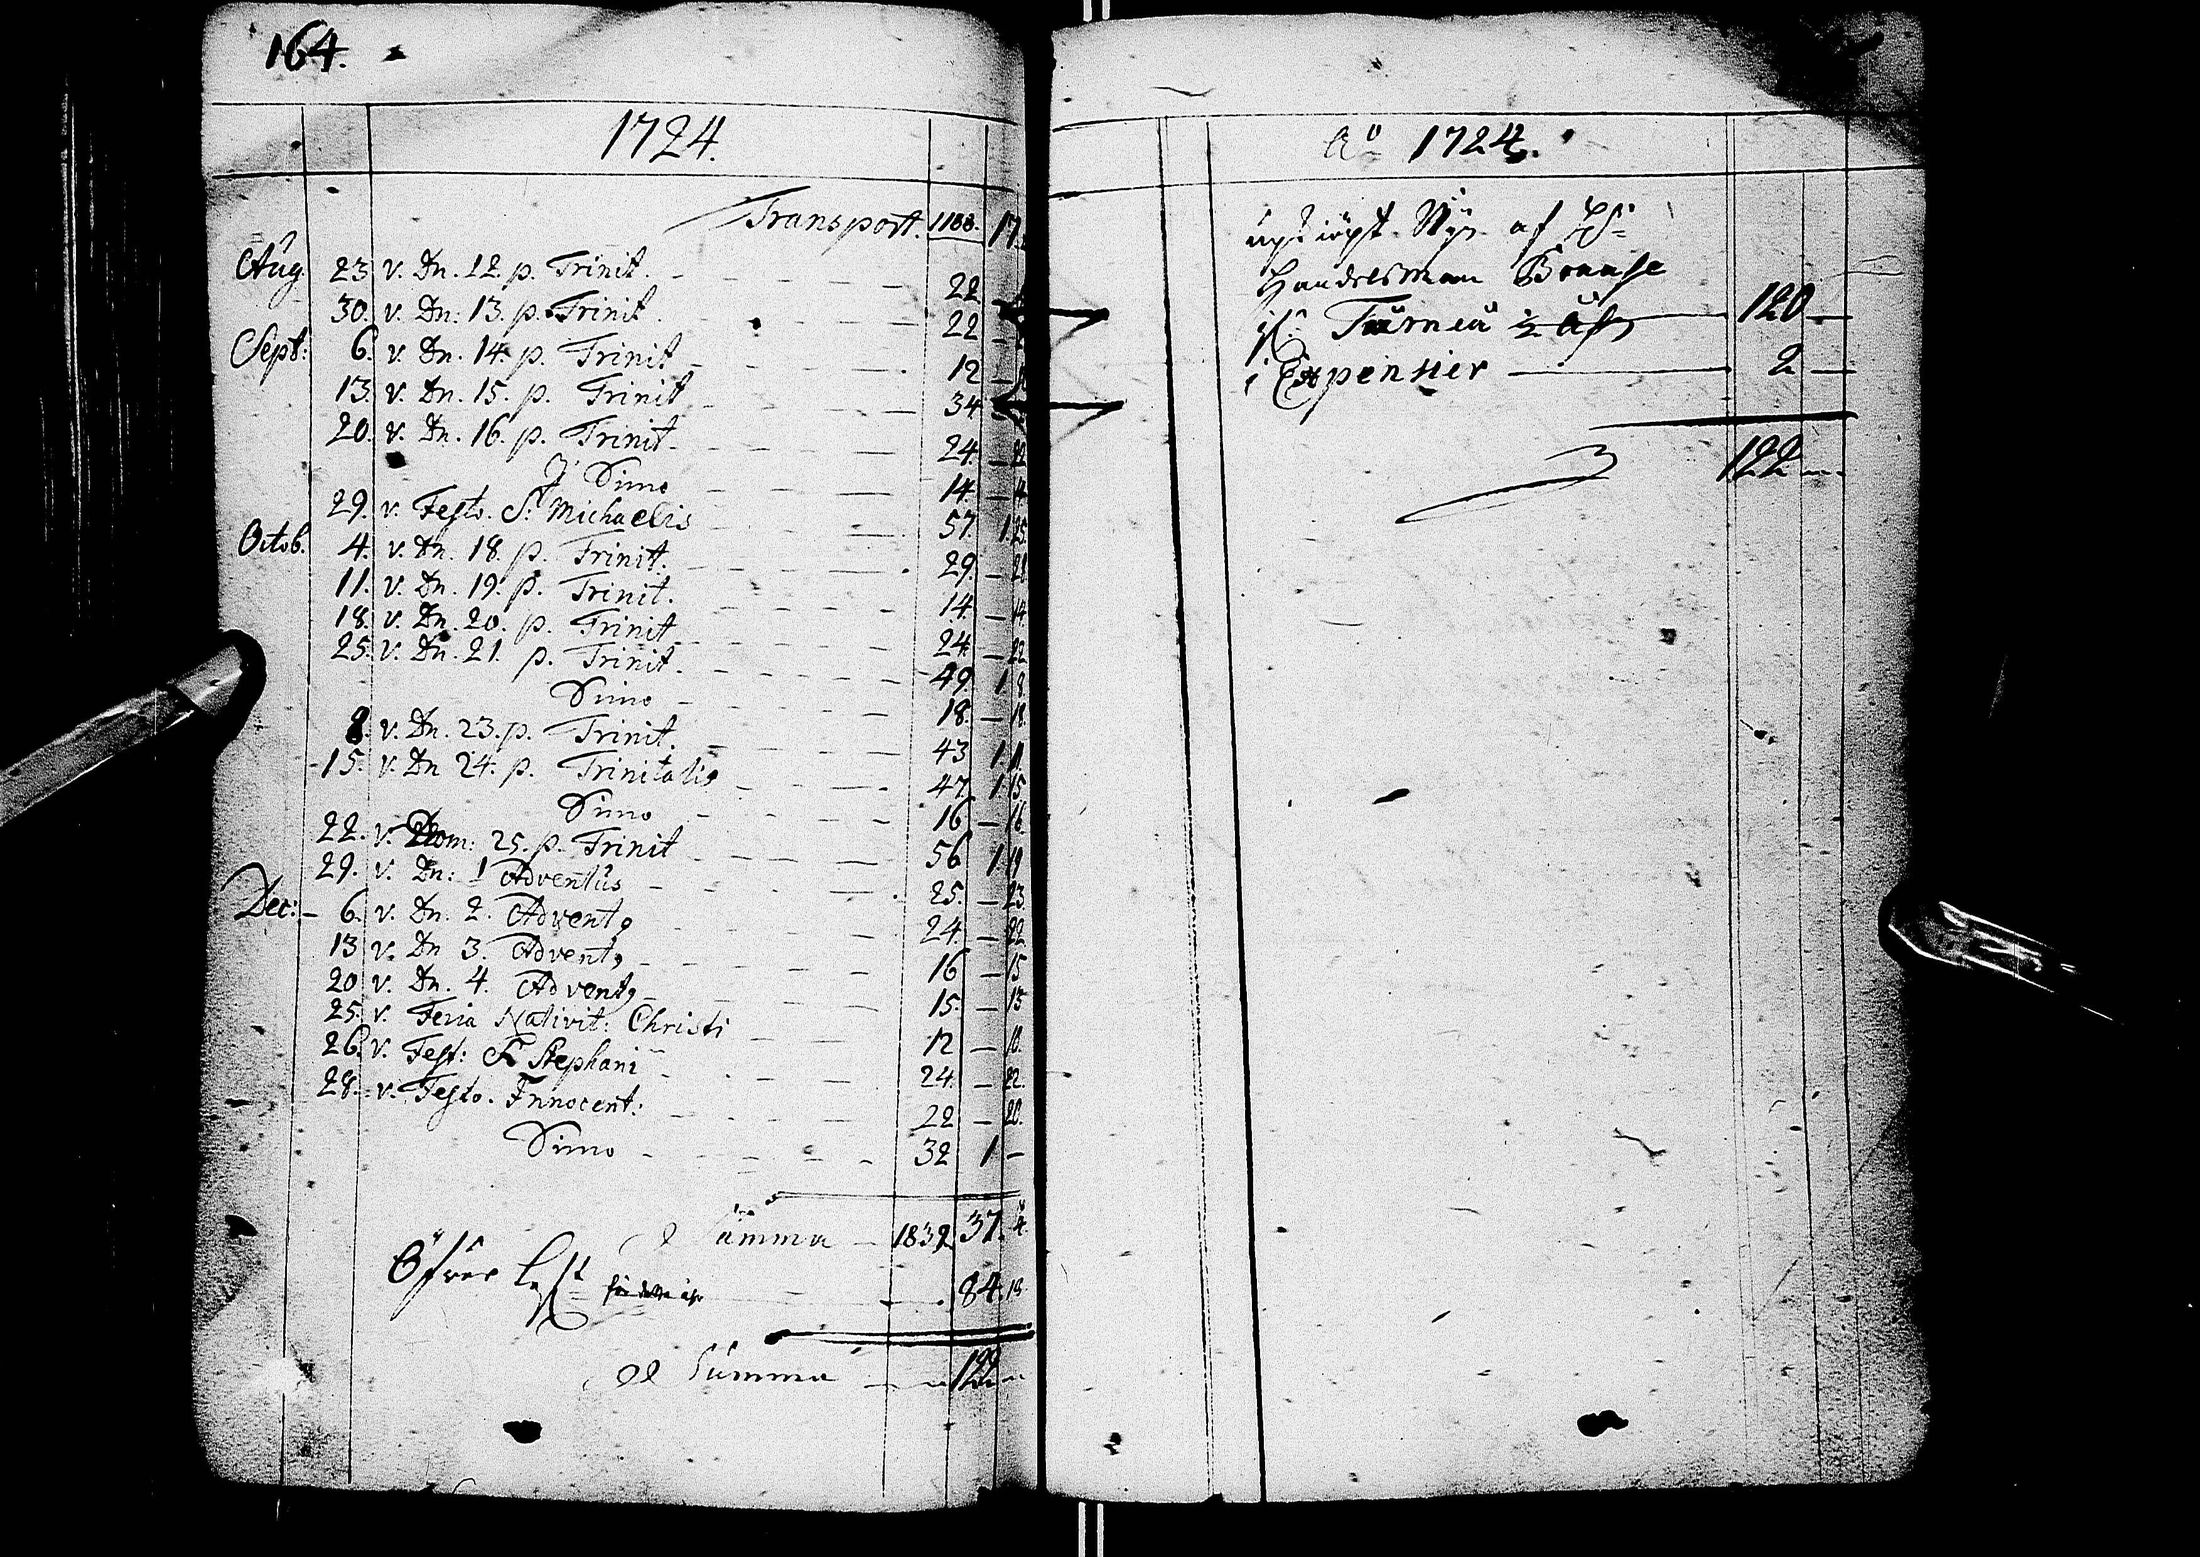 164.
1724.
Transport. 1188. 17.
Aug. 23 v. Dn. 12. p. Trinit. 22
30. v. Dn. 13. p. Trinit. 22
Sept: 6. v. Dn. 14. p. Trinit 12
13. v. Dn. 15. p. Trinit 34
20. v. Dn. 16. p. Trinit 24. — 22
Simo 14. — 4
29. v. Festo. St. Michaelis 57. 1. 25.
Octob. 4. v. Dn. 18. p. Trinit. 29. — 28
11. v. Dn. 19. p. Trinit. 14. — 14
18. v. Dn. 20. p. Trinit 24. — 22
25. v. Dn. 21. p. Trinit. 49. 1. 8.
Simo 18. — 18.
8. v. Dn. 23. p. Trinit. 43 1. 11.
15. v. Dn 24. p. Trinitatis 47. 1. 15
Simo 16 — 16
22. v. Dom: 25. p. Trinit 56 1. 19
29. v. Dn: 1 Adventus 25. — 23.
Dec: 6. v. Dn. 2. Advent9 24. — 22
13 v. Dn 3. Advent9 16 — 15
20 v. Dn. 4. Advent9 15. — 13
25. v. Feria Nativit: Christi 12 — 10.
26. v. Fest: St. Stephani 24. — 22.
28. v. Festo. Innocent: 22 — 20.
Simo 32 1 —
Summa 1839 37. 4.
Öfver 84.
Summa 122
Ao 1724.
upkiöpt af
Handelsman
Torneå 120 —
Expensier 2 —
122